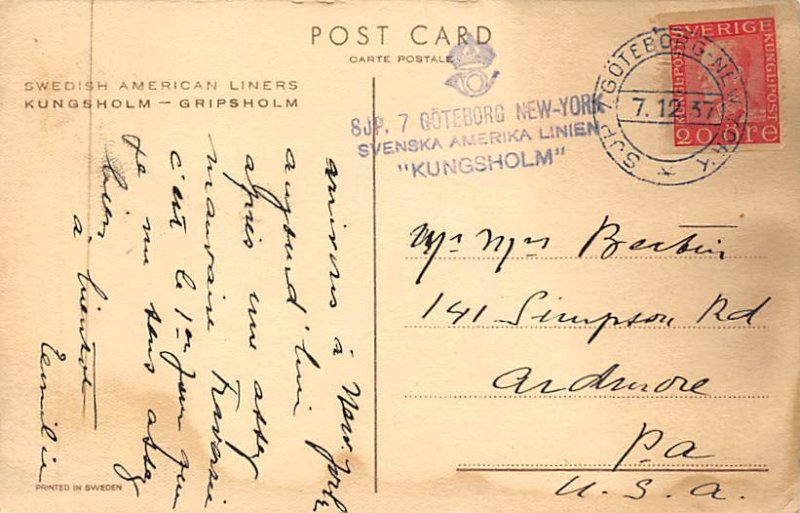 POST CARD
CARTE POSTALE
SWEDISH AMERICAN LINERS
KUNGSHOLM — GRIPSHOLM
SJP. 7 GÖTEBORG NEW-YORK
SVENSKA AMERIKA LINIEN
"KUNGSHOLM"
SJP. 7 GÖTEBORG-NEW YORK
7.12.37
SVERIGE
KUNGL:POST
KUNGL:POST
20 öre
arrivons à New York
aujourd'hui
après une assez
mauvaise traversée
c'est le 1er jour que
je me sens assez
bien
à bientôt
Emilie
Mr Mrs Berlin
141 Simpson Rd
Ardmore
Pa
U.S.A.
PRINTED IN SWEDEN